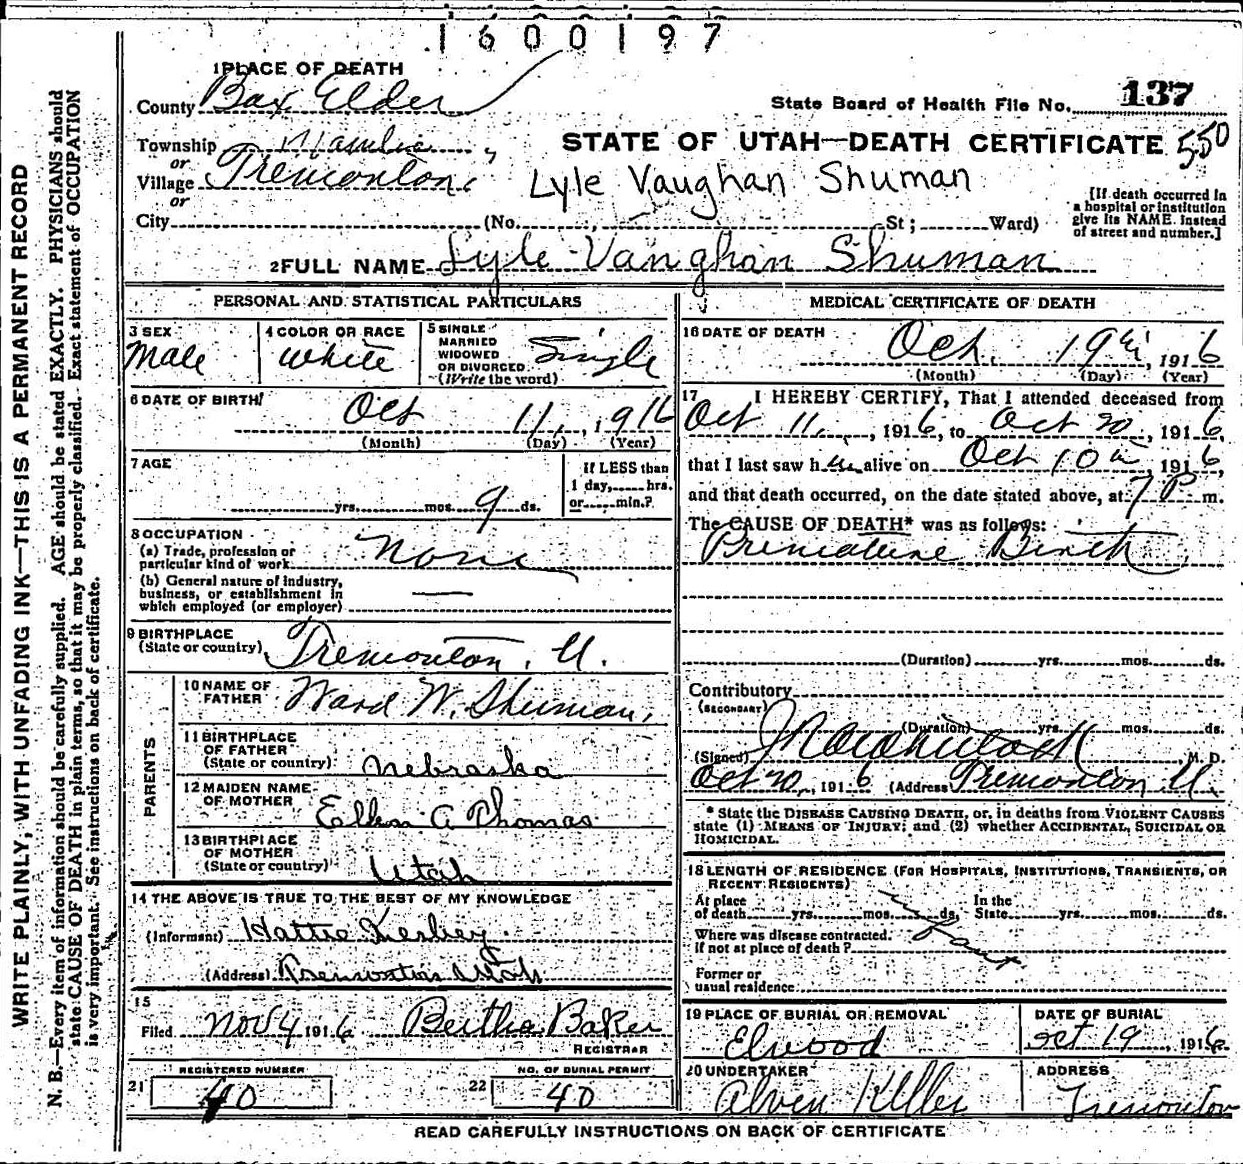 1600197
1 PLACE OF DEATH
County Box Elder
State Board of Health File No. 137
Township
or
STATE OF UTAH—DEATH CERTIFICATE 550
Village Tremonton
or
Lyle Vaughan Shuman
[If death occurred in
a hospital or institution
give its NAME. instead
of street and number.]
City (No. St; Ward)
2 FULL NAME Lyle Vaughan Shuman
PERSONAL AND STATISTICAL PARTICULARS
3 SEX
Male
4 COLOR OR RACE
White
5 SINGLE
MARRIED
WIDOWED
OR DIVORCED
(Write the word)
Single
6 DATE OF BIRTH
Oct 11, 1916
(Month) (Day) (Year)
7 AGE
yrs. mos. 9 ds.
If LESS than
1 day, hrs.
or min.?
8 OCCUPATION
(a) Trade, profession or
particular kind of work None
(b) General nature of industry,
business, or establishment in
which employed (or employer) —
9 BIRTHPLACE
(State or country) Tremonton, U.
PARENTS
10 NAME OF
FATHER Ward W. Shuman,
11 BIRTHPLACE
OF FATHER
(State or country) Nebraska
12 MAIDEN NAME
OF MOTHER Ellen A Thomas
13 BIRTHPLACE
OF MOTHER
(State or country) Utah
14 THE ABOVE IS TRUE TO THE BEST OF MY KNOWLEDGE
(Informant) Hattie
(Address) Tremonton Utah
15
Filed Nov 4 1916 Bertha Baker
REGISTRAR
21 REGISTERED NUMBER
40
22 NO. OF BURIAL PERMIT
40
MEDICAL CERTIFICATE OF DEATH
16 DATE OF DEATH
Oct. 19th, 1916
(Month) (Day) (Year)
17 I HEREBY CERTIFY, That I attended deceased from
Oct 11, 1916, to Oct 20, 1916,
that I last saw h alive on Oct 10th, 1916,
and that death occurred, on the date stated above, at 7 P m.
The CAUSE OF DEATH* was as follows:
Premature Birth
(Duration) yrs. mos. ds.
Contributory
(SECONDARY)
(Duration) yrs. mos. ds.
(Signed) M. D.
Oct 20, 1916 (Address) Tremonton U.
* State the DISEASE CAUSING DEATH, or, in deaths from VIOLENT CAUSES
state (1) MEANS OF INJURY; and (2) whether ACCIDENTAL, SUICIDAL OR
HOMICIDAL.
18 LENGTH OF RESIDENCE (FOR HOSPITALS, INSTITUTIONS, TRANSIENTS, OR
RECENT RESIDENTS)
At place
of death yrs. mos. ds.
In the
State yrs. mos. ds.
Where was disease contracted.
If not at place of death?
Former or
usual residence
19 PLACE OF BURIAL OR REMOVAL
Elwood
DATE OF BURIAL
Oct 19, 1916
20 UNDERTAKER
Alven Keller
ADDRESS
Tremonton
READ CAREFULLY INSTRUCTIONS ON BACK OF CERTIFICATE
WRITE PLAINLY, WITH UNFADING INK—THIS IS A PERMANENT RECORD
N. B.—Every item of information should be carefully supplied. AGE should be stated EXACTLY. PHYSICIANS should
state CAUSE OF DEATH in plain terms, so that it may be properly classified. Exact statement of OCCUPATION
is very important. See instructions on back of certificate.